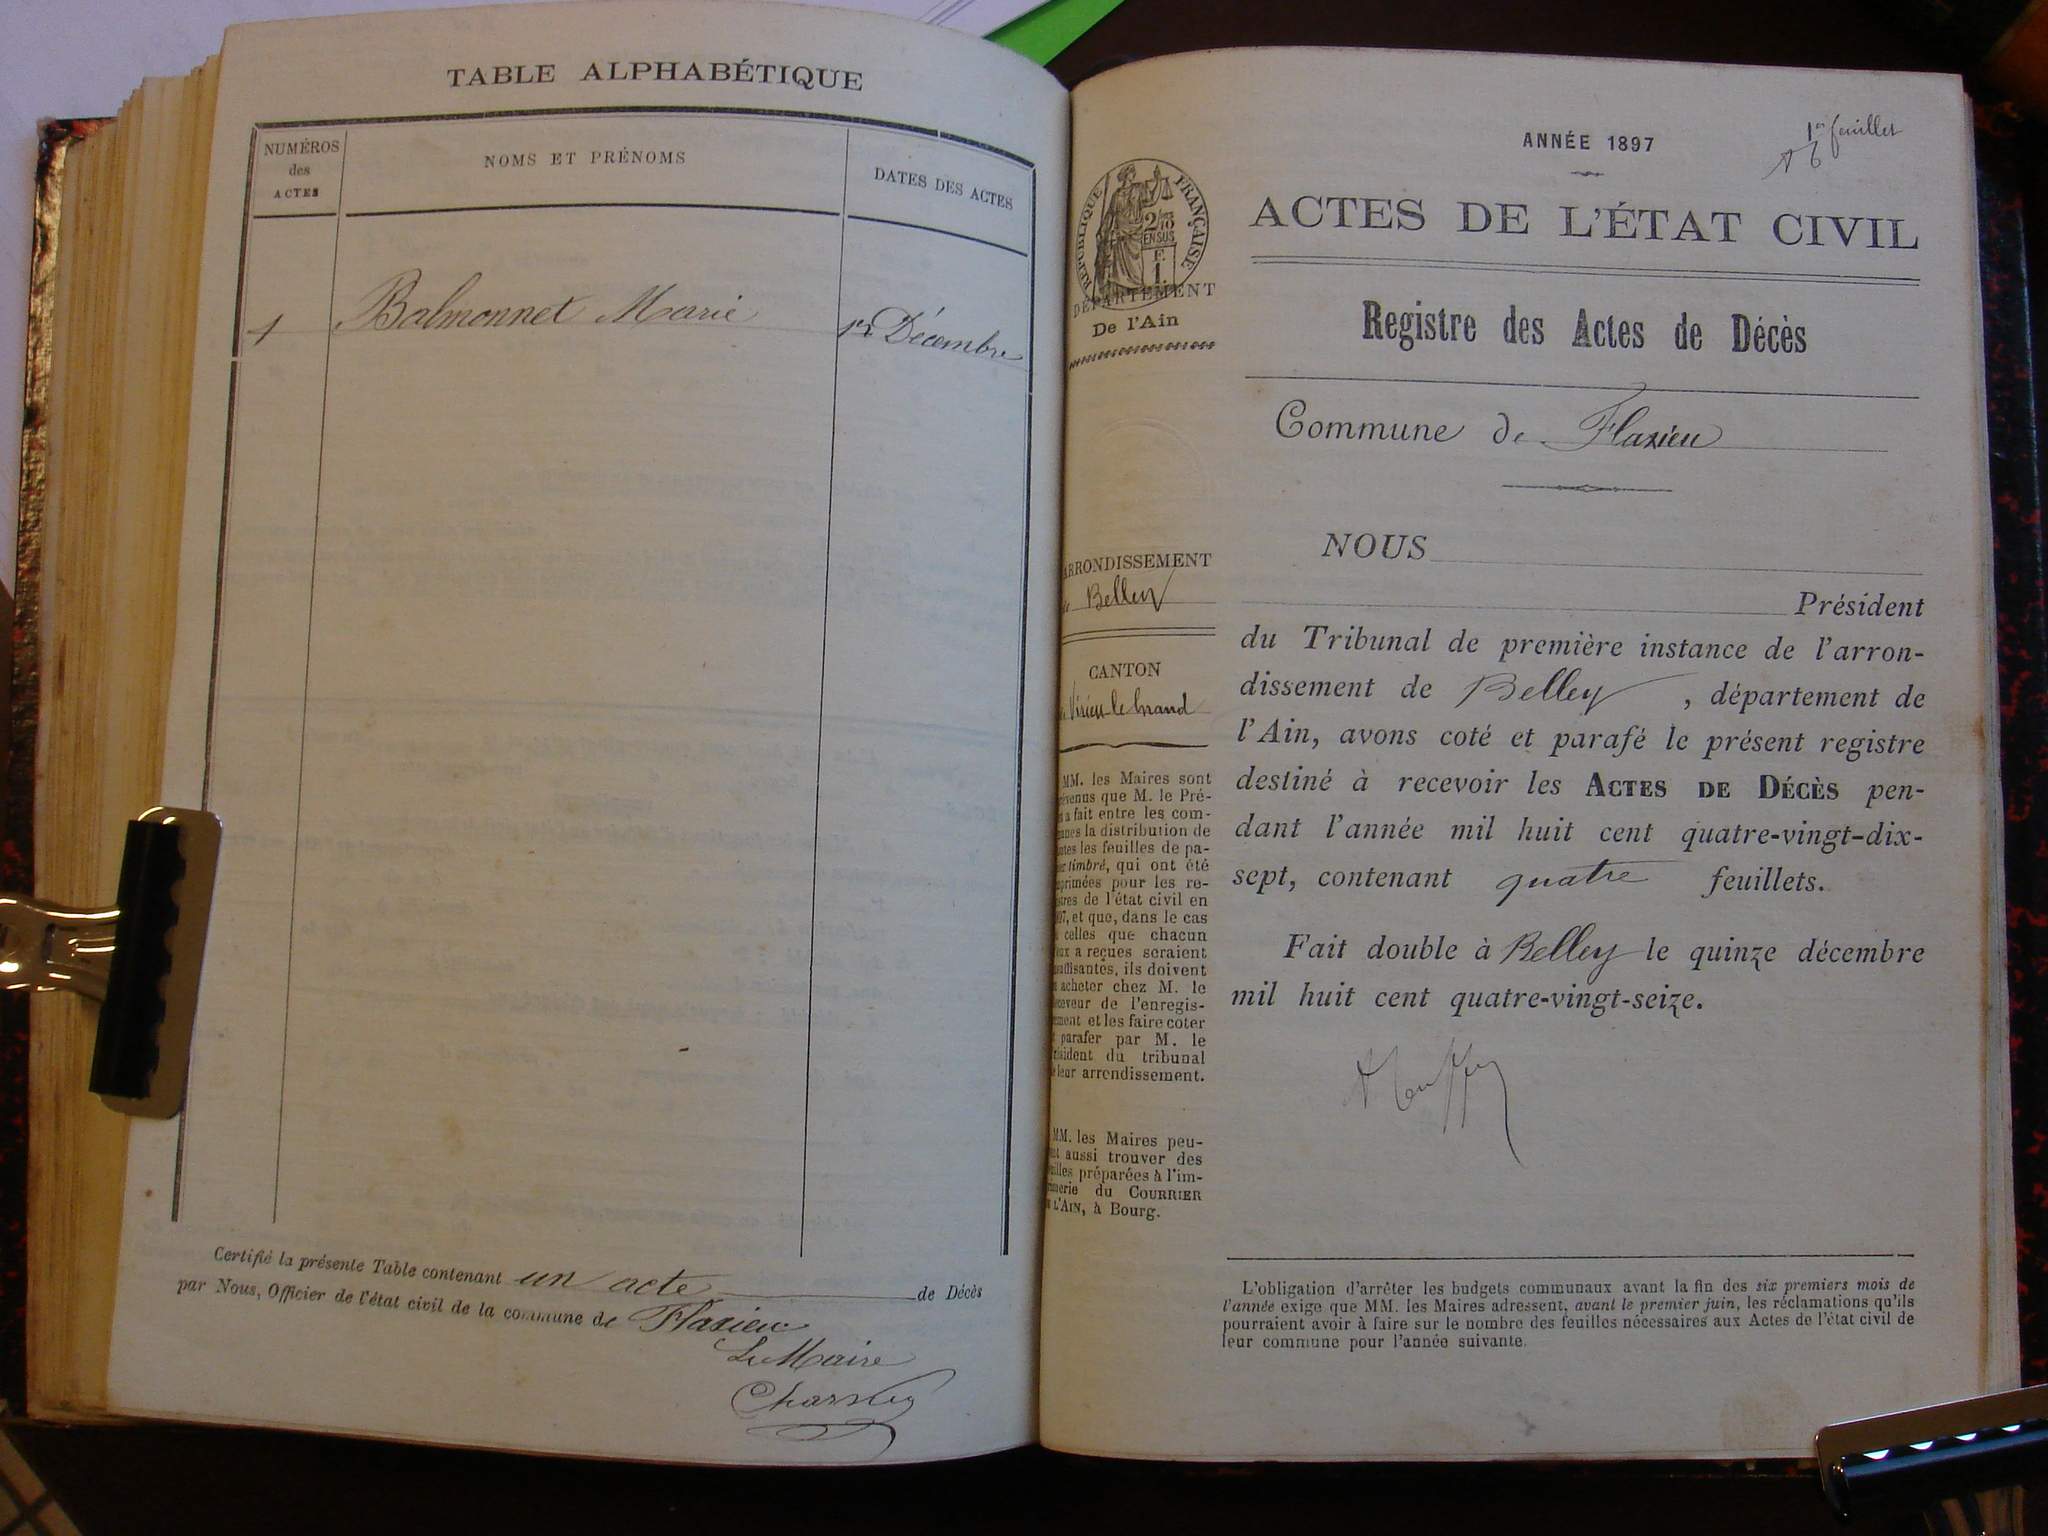 TABLE ALPHABÉTIQUE
NUMÉROS
des
ACTES
NOMS ET PRÉNOMS
DATES DES ACTES
1 Balmonnet Marie 1er Décembre
Certifié la présente Table contenant un acte de Décès
par Nous, Officier de l'état civil de la commune de Flaxieu
Le Maire
ANNÉE 1897
1er feuillet
ACTES DE L'ÉTAT CIVIL
RÉPUBLIQUE FRANÇAISE
2/10
EN SUS
F.
1.
DÉPARTEMENT
De l'Ain
Registre des Actes de Décès
Commune de Flaxieu
ARRONDISSEMENT
de Belley
CANTON
de Virieu le Grand
MM. les Maires sont
prévenus que M. le Pré-
a fait entre les com-
munes la distribution de
toutes les feuilles de pa-
pier timbré, qui ont été
imprimées pour les re-
gistres de l'état civil en
1897, et que, dans le cas
celles que chacun
d'eux a reçues seraient
insuffisantes, ils doivent
en acheter chez M. le
receveur de l'enregis-
trement et les faire coter
et parafer par M. le
Président du tribunal
de leur arrondissement.
MM. les Maires peu-
vent aussi trouver des
feuilles préparées à l'im-
primerie du COURRIER
DE L'AIN, à Bourg.
NOUS
Président
du Tribunal de première instance de l'arron-
dissement de Belley, département de
l'Ain, avons coté et parafé le présent registre
destiné à recevoir les ACTES DE DÉCÈS pen-
dant l'année mil huit cent quatre-vingt-dix-
sept, contenant quatre feuillets.
Fait double à Belley le quinze décembre
mil huit cent quatre-vingt-seize.
L'obligation d'arrêter les budgets communaux avant la fin des six premiers mois de
l'année exige que MM. les Maires adressent, avant le premier juin, les réclamations qu'ils
pourraient avoir à faire sur le nombre des feuilles nécessaires aux Actes de l'état civil de
leur commune pour l'année suivante.